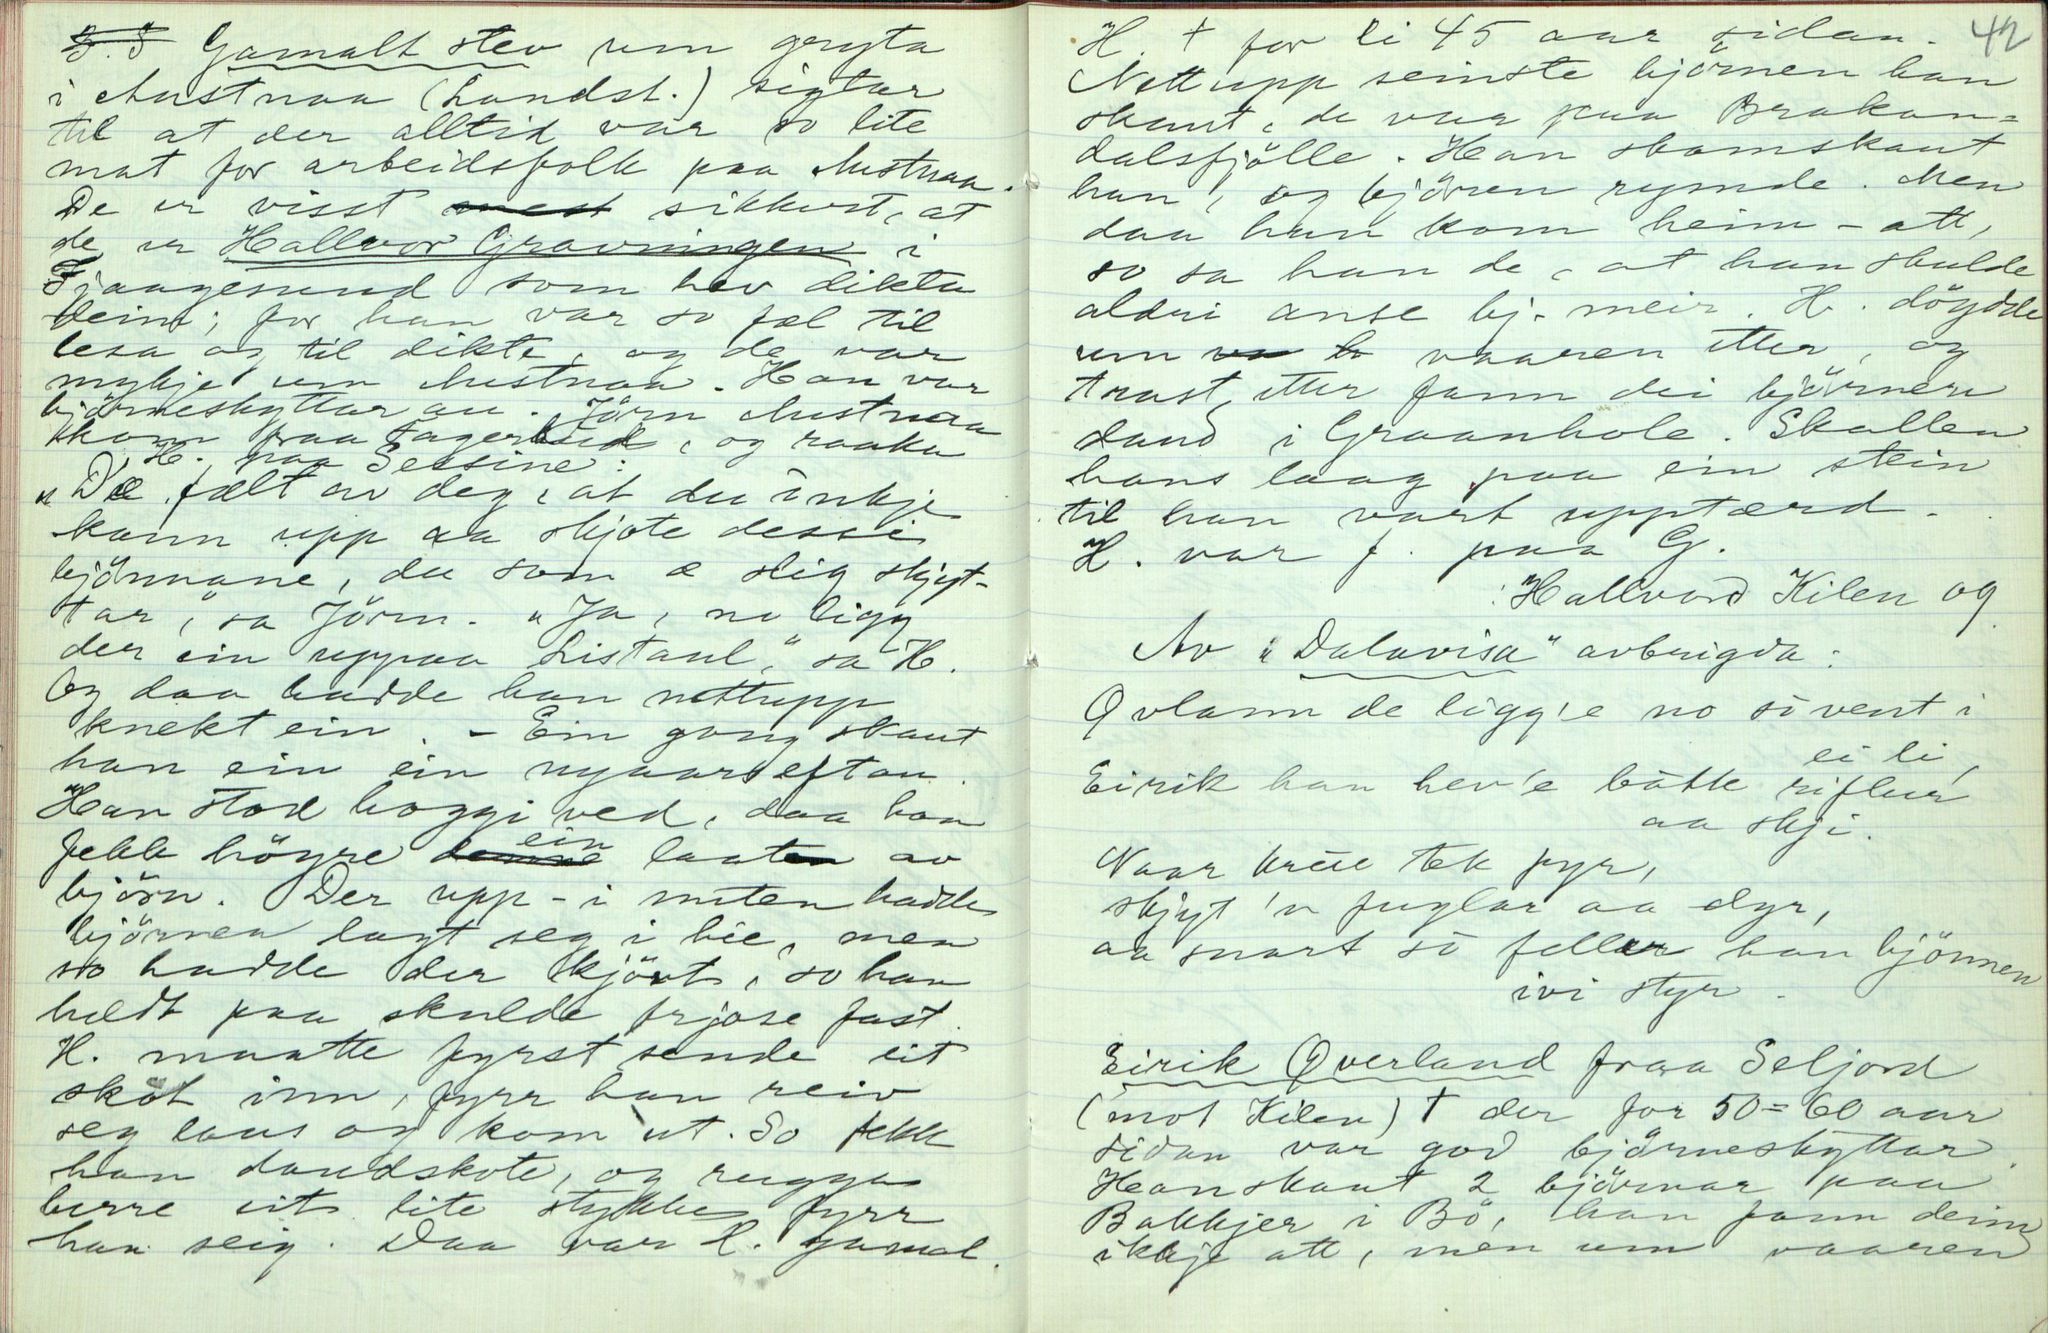 Gamalt stev um gryta
i Austnaa (Landst.) sigtar
til at der alltid var so lite
mat for arbeidsfolk paa Austnaa.
De er visst mest sikkert, at
de er Hallvor Gravningen i
Fjaagesund som hev dikta
deim; for han var so fæl til
lesa og til dikte, og de var
mykje um Austnaa. Han var
björneskyttar au. Jörn Austnaa
kom fraa Fagerlud, og raaka
H. paa Sessine:
"De fælt av deg, at du inkje
kann upp aa skjote dessi
björnane, du som æ slig skjyt-
tar," sa Jörn. "Ja, no ligg
der ein uppaa Listaul," sa H.
Og daa hadde han nettupp
knekt ein. - Ein gong skaut
han ein ein nyaarseftan.
Han stod hoggi ved, daa han
fekk höyre denne ein laaten av
björn. Der upp-i nuten hadde
björnen lagt seg i hie, men
so hadde der kjövt, so han
heldt paa skulde frjose fast.
H. maatte fyrst sende eit
skot inn, fyrr han reiv
seg laus og kom ut. So fekk
han daudskote, og rugga
berre eit lite stykke fyrr
han seig. Daa var H. gamal.
42
H. † for li 45 aar sidan.
Nettupp seinste björnen han
skaut, de var paa Brokan=
dalsfjölle. Han skamskaut
han, og björen rymde. Men
daa han kom heim-att,
so sa han de, at han skulde
aldri anse bj. meir. H. döydde
um vaaren etter, og
trast etter fann dei björnen
daud i Graanhole. Skallen
hans laag paa ein stein
til han vart upptærd.
H. var f. paa G.
: Hallvard Kilen og
Av "Dalavisa" avbrigda:
Qvlann de ligg'e no so vent i
ei li,
Eirik han hev'e båtte riflur
aa skji.
Naar krue tek fyr,
skjyt 'n fuglar aa dyr,
aa snart so feller han björnen
ivi styr.
Eirik Qverland fraa Seljord
(mot Kilen) † der for 50=60 aar
sidan var god björneskyttar.
Han skaut 2 björnar paa
Bakkjer i Bö, han fann deim
ikkje att, men um vaaren